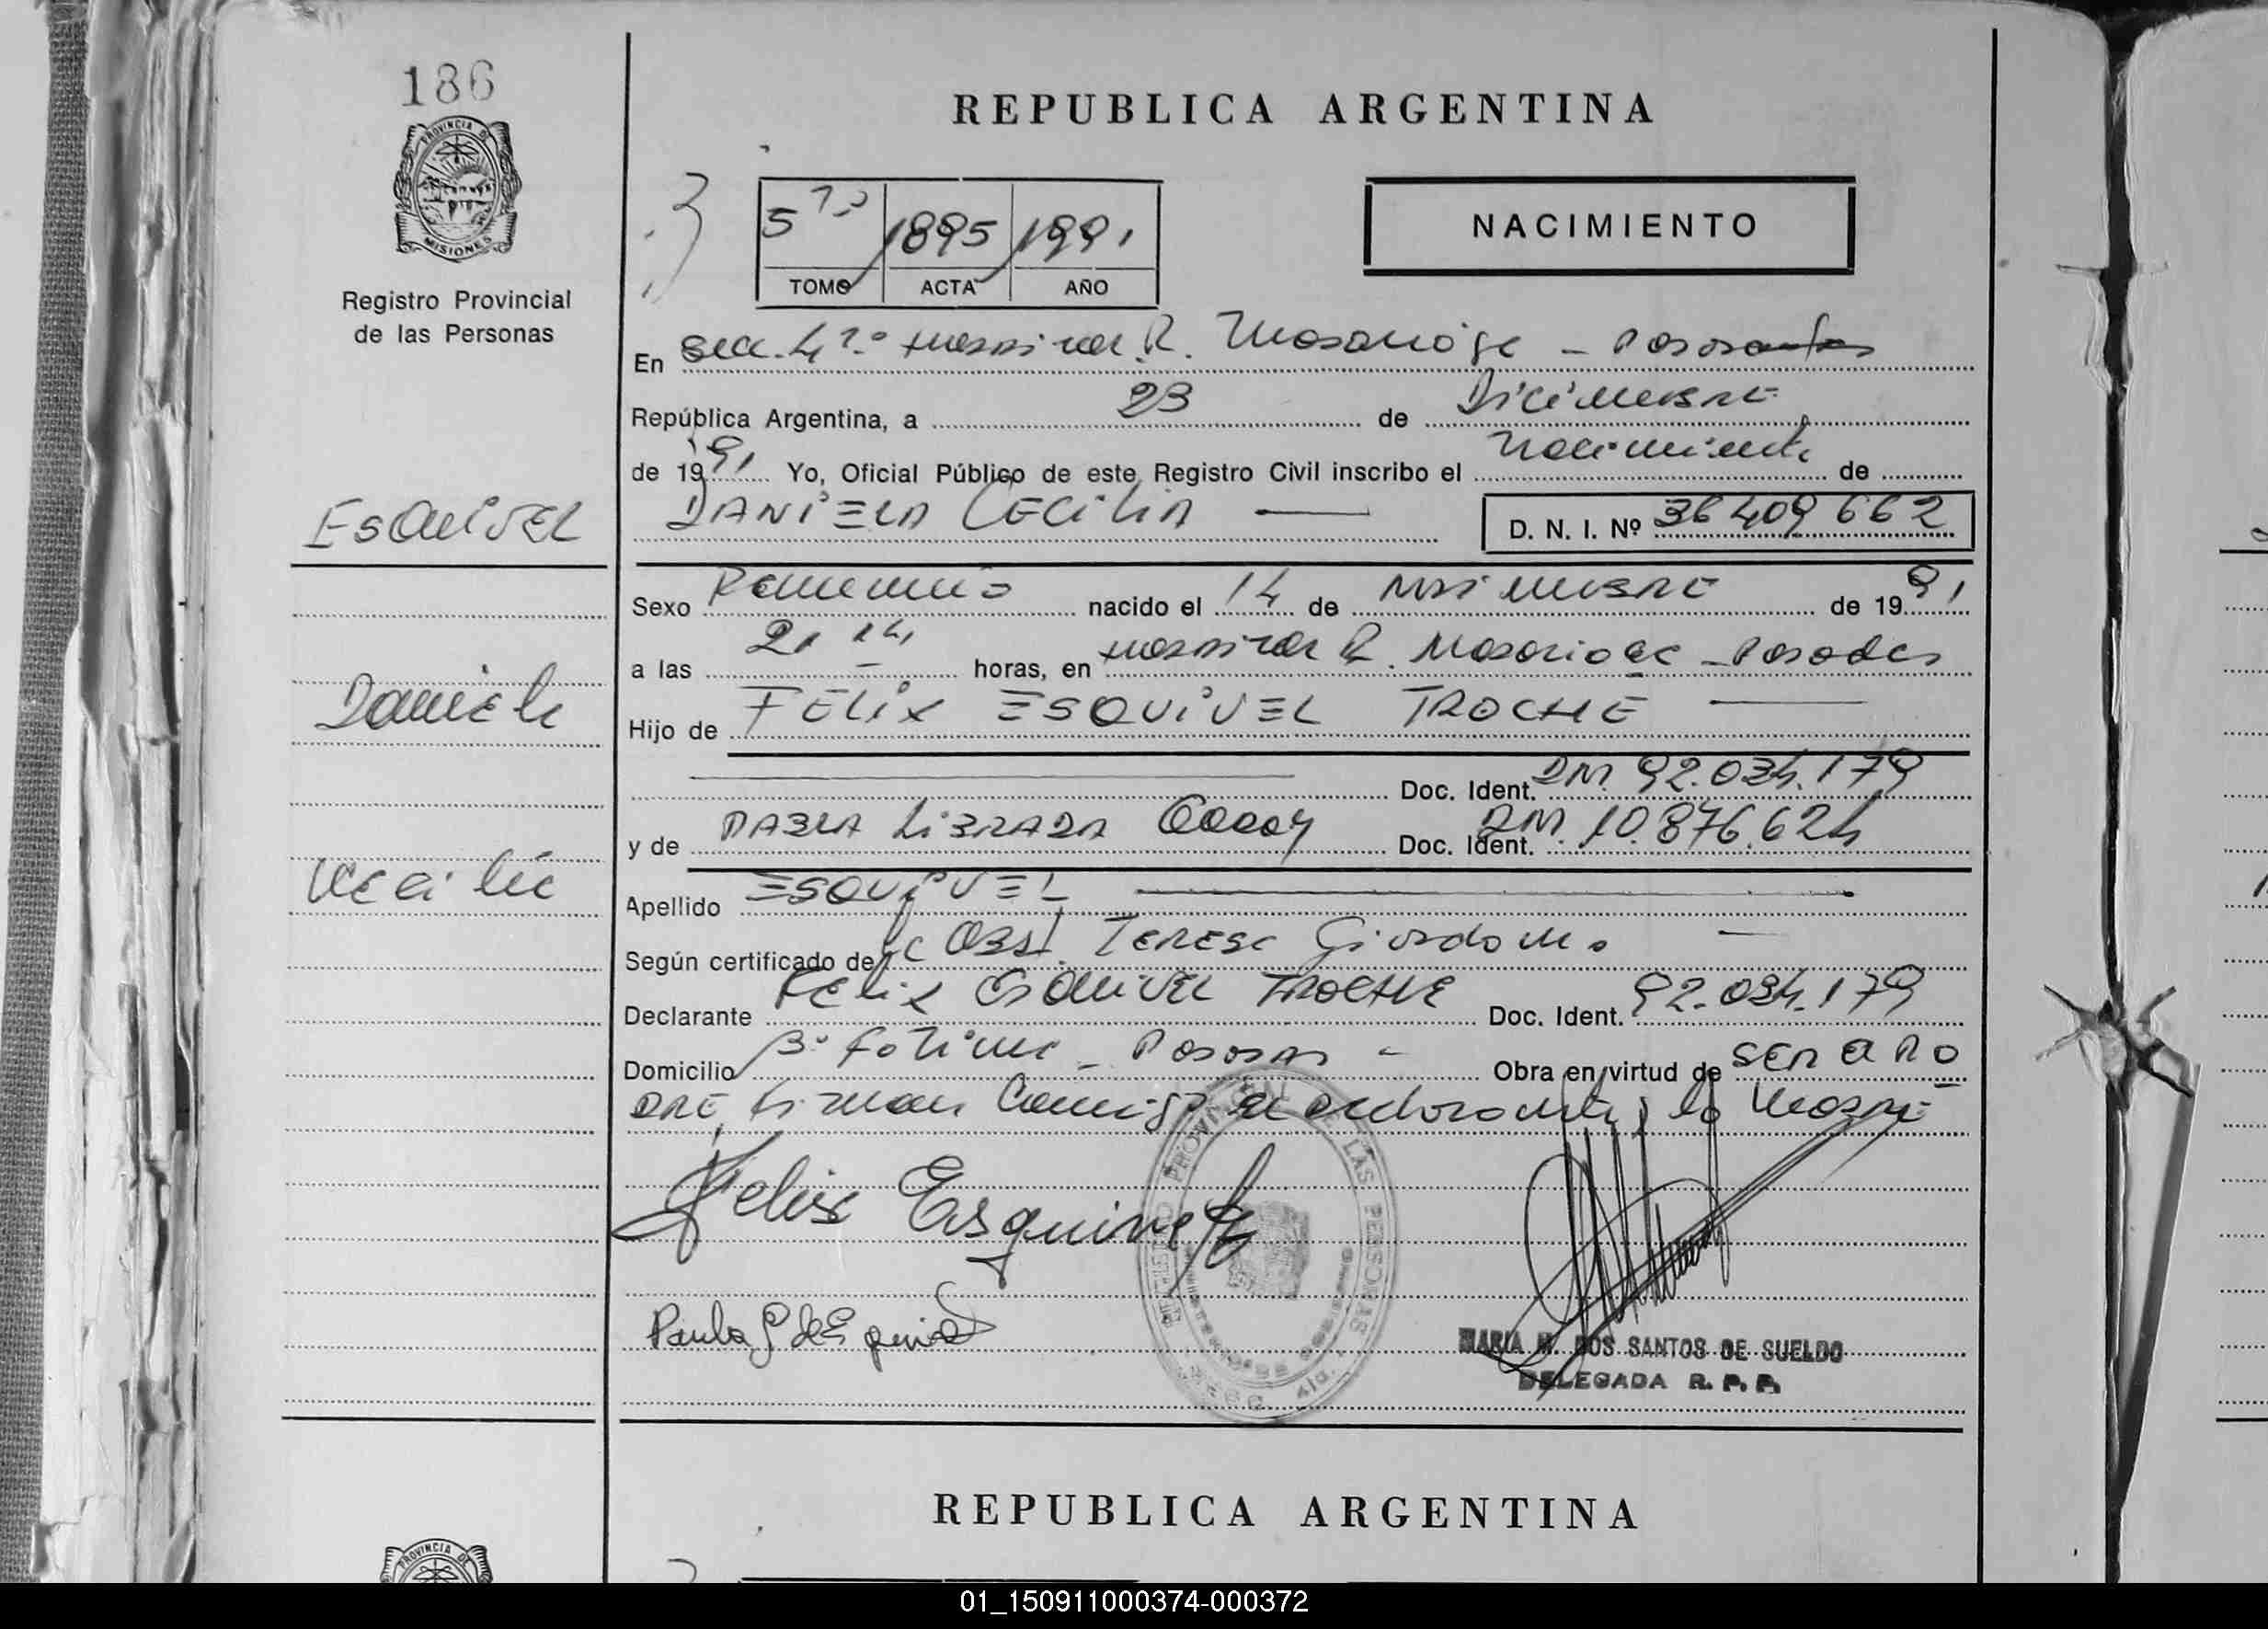 186
PROVINCIA DE
MISIONES
Registro Provincial
de las Personas
REPUBLICA ARGENTINA
5 1895 1991
TOMO ACTA AÑO
NACIMIENTO
En Secc. 4 Hospital R. Madariaga - Posadas
República Argentina, a 23 de Diciembre
de 1991 Yo, Oficial Público de este Registro Civil inscribo el Nacimiento de
DANIELA CECILIA
D. N. I. Nº 36409662
Esquivel
Daniela
Cecilia
Sexo Femenino nacido el 14 de Noviembre de 1991
a las 21 horas, en Hospital R. Madariaga - Posadas
Hijo de FELIX ESQUIVEL TROCHE
Doc. Ident. DNI. 92.034.179
y de LIBRADA Godoy Doc. Ident. DNI. 10.876.624
Apellido ESQUIVEL
Según certificado de la Obst. Teresa
Declarante Felix Esquivel Troche Doc. Ident. 92.034.179
Domicilio Bº Fatima - Posadas - Obra en virtud de ser el pa
dre firman Conmigo el declarante y la Madre
Felix Esquivel
Paula G de Esquivel
REGISTRO PROVINCIAL DE LAS PERSONAS
MARIA M. DOS SANTOS DE SUELDO
DELEGADA R. P. P.
REPUBLICA ARGENTINA
PROVINCIA DE
01_150911000374-000372